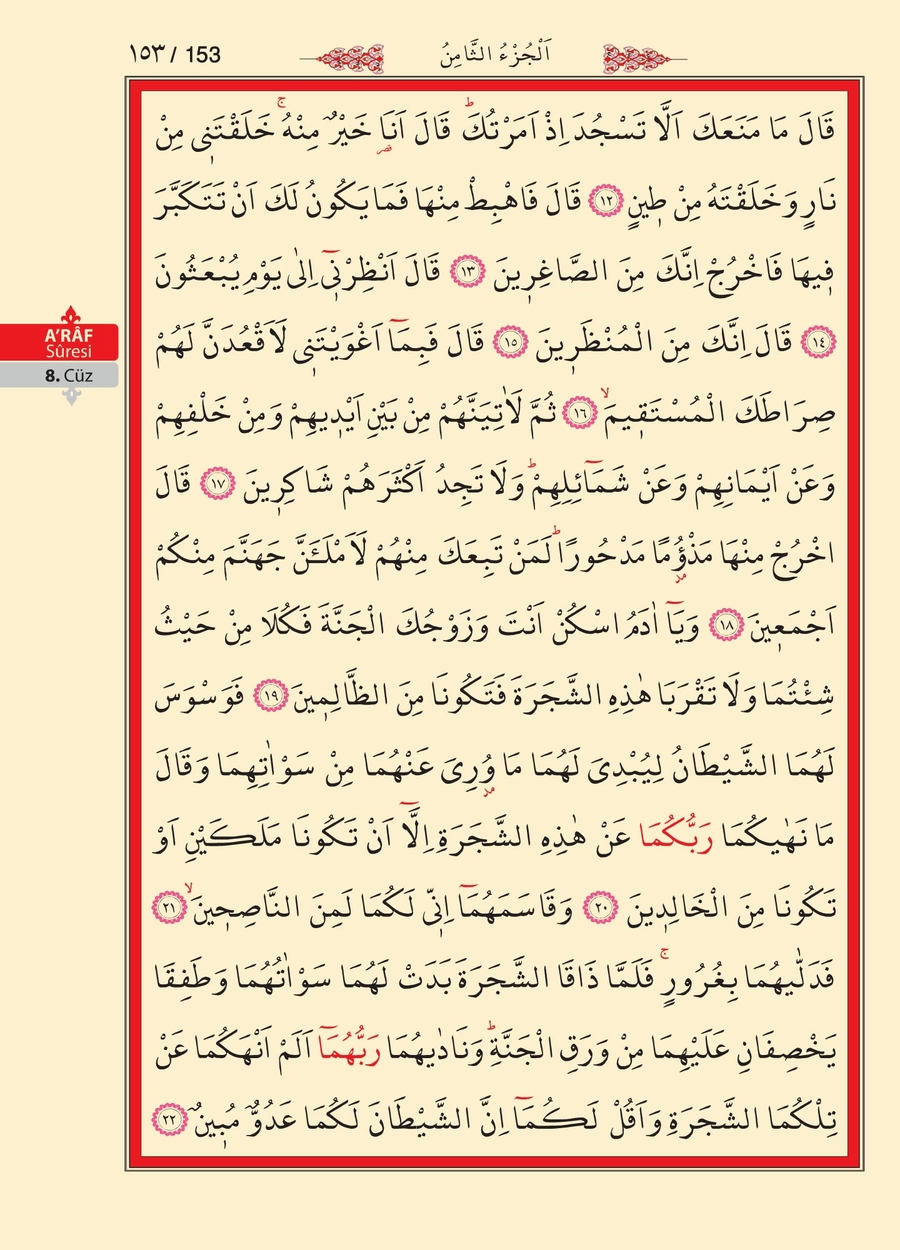 ١٥٣ / 153
اَلْجُزْءُ الثَّامِنُ
A’RÂF
Sûresi
8. Cüz
قَالَ مَا مَنَعَكَ اَلَّا تَسْجُدَ اِذْ اَمَرْتُكَۜ قَالَ اَنَا۬ خَيْرٌ مِنْهُۚ خَلَقْتَنٖى مِنْ
نَارٍ وَخَلَقْتَهُ مِنْ طٖينٍ ﴿١٢﴾ قَالَ فَاهْبِطْ مِنْهَا فَمَا يَكُونُ لَكَ اَنْ تَتَكَبَّرَ
فٖيهَا فَاخْرُجْ اِنَّكَ مِنَ الصَّاغِرٖينَ ﴿١٣﴾ قَالَ اَنْظِرْنٖٓى اِلٰى يَوْمِ يُبْعَثُونَ
﴿١٤﴾ قَالَ اِنَّكَ مِنَ الْمُنْظَرٖينَ ﴿١٥﴾ قَالَ فَبِمَٓا اَغْوَيْتَنٖى لَاَقْعُدَنَّ لَهُمْ
صِرَاطَكَ الْمُسْتَقٖيمَۙ ﴿١٦﴾ ثُمَّ لَاٰتِيَنَّهُمْ مِنْ بَيْنِ اَيْدٖيهِمْ وَمِنْ خَلْفِهِمْ
وَعَنْ اَيْمَانِهِمْ وَعَنْ شَمَٓائِلِهِمْۜ وَلَا تَجِدُ اَكْثَرَهُمْ شَاكِرٖينَ ﴿١٧﴾ قَالَ
اخْرُجْ مِنْهَا مَذْؤُ۫مًا مَدْحُورًاۜ لَمَنْ تَبِعَكَ مِنْهُمْ لَاَمْلَـَٔنَّ جَهَنَّمَ مِنْكُمْ
اَجْمَعٖينَ ﴿١٨﴾ وَيَٓا اٰدَمُ اسْكُنْ اَنْتَ وَزَوْجُكَ الْجَنَّةَ فَكُلَا مِنْ حَيْثُ
شِئْتُمَا وَلَا تَقْرَبَا هٰذِهِ الشَّجَرَةَ فَتَكُونَا مِنَ الظَّالِمٖينَ ﴿١٩﴾ فَوَسْوَسَ
لَهُمَا الشَّيْطَانُ لِيُبْدِىَ لَهُمَا مَا وُ۫رِىَ عَنْهُمَا مِنْ سَوْاٰتِهِمَا وَقَالَ
مَا نَهٰيكُمَا رَبُّكُمَا عَنْ هٰذِهِ الشَّجَرَةِ اِلَّٓا اَنْ تَكُونَا مَلَكَيْنِ اَوْ
تَكُونَا مِنَ الْخَالِدٖينَ ﴿٢٠﴾ وَقَاسَمَهُمَٓا اِنّٖى لَكُمَا لَمِنَ النَّاصِحٖينَۙ ﴿٢١﴾
فَدَلّٰيهُمَا بِغُرُورٍۚ فَلَمَّا ذَاقَا الشَّجَرَةَ بَدَتْ لَهُمَا سَوْاٰتُهُمَا وَطَفِقَا
يَخْصِفَانِ عَلَيْهِمَا مِنْ وَرَقِ الْجَنَّةِۜ وَنَادٰيهُمَا رَبُّهُمَٓا اَلَمْ اَنْهَكُمَا عَنْ
تِلْكُمَا الشَّجَرَةِ وَاَقُلْ لَكُمَٓا اِنَّ الشَّيْطَانَ لَكُمَا عَدُوٌّ مُبٖينٌ ﴿٢٢﴾